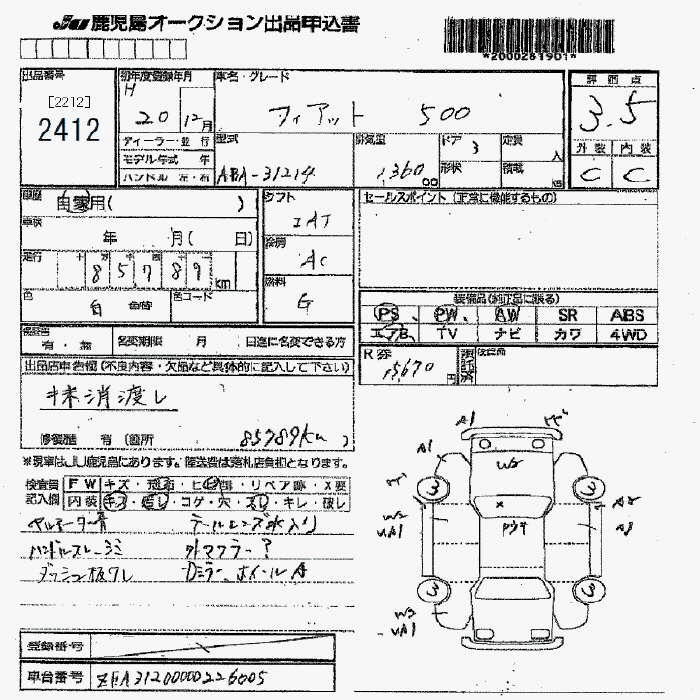 JU 鹿児島オークション出品申込書
*2000281901*
出品番号
[2212]
2412
初年度登録年月
H 20 12月
ディーラー・並行
モデル年式 年
ハンドル 左・右
車名・グレード
フィアット 500
型式
ABA-31214
排気量
1360 00
ドア 3
形状
定員 人
積載 kg
評価点
3.5
外装 内装
C C
車歴
自家用( )
車検
年 月( 日)
走行
85789 km
色
白 色替
色コード
シフト
IAT
冷房
AC
燃料
G
セールスポイント (正常に機能するもの)
装備品(純正品に限る)
PS PW AW SR ABS
エアB TV ナビ カワ 4WD
保証書
有・無
名変期限 月 日迄に名変できる方
R券
15670円
出品店申告欄(不良内容・欠品など具体的に記入して下さい)
抹消渡し
修復歴 有 (箇所 85789km )
※現車はJU鹿児島にあります。陸送費は落札店負担となります。
検査員
記入欄
FW キズ・ ・ヒビ ・リペア跡・X要
内装 キズ・ ・コゲ・穴・スレ・キレ・破レ
テールレンズ水入り
ハンドルスレ
外マフラー?
ダッシュ板ワレ
Dミラー、ホイールA
A1
W2
A1
3
3
3
3
W2
A2
A1
W3
登録番号
車台番号
ZFA31200000226005